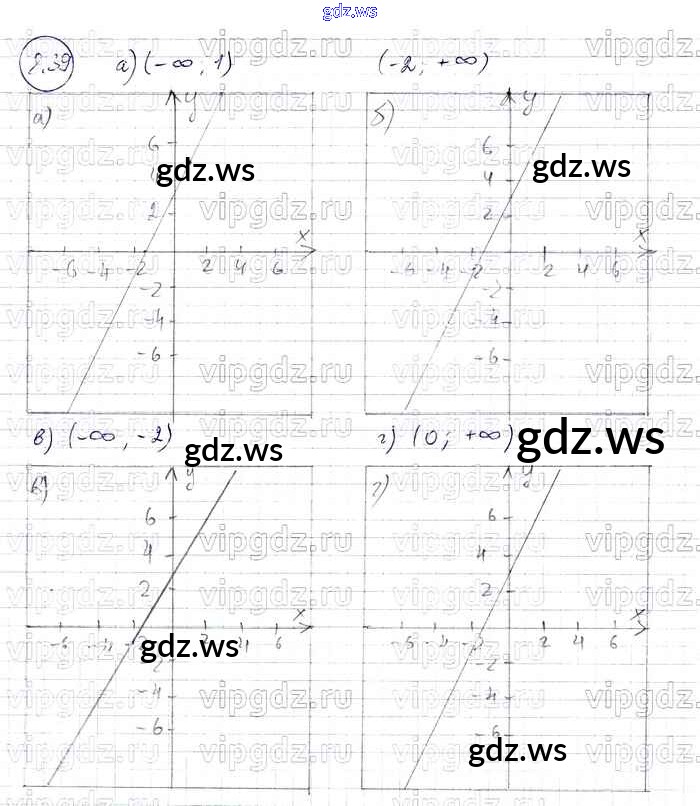 gdz.ws
8.39 а) (-∞; 1) (-2; +∞)
а) y б) y
6 6
4 4
2 2
x x
-6 -4 -2 2 4 6 -6 -4 -2 2 4 6
-2 -2
-4 -4
-6 -6
в) (-∞, -2) г) (0; +∞)
в) y г) y
6 6
4 4
2 2
x x
-6 -4 -2 2 4 6 -6 -4 -2 2 4 6
-2 -2
-4 -4
-6 -6
gdz.ws
gdz.ws
gdz.ws
gdz.ws
gdz.ws
gdz.ws
vipgdz.ru